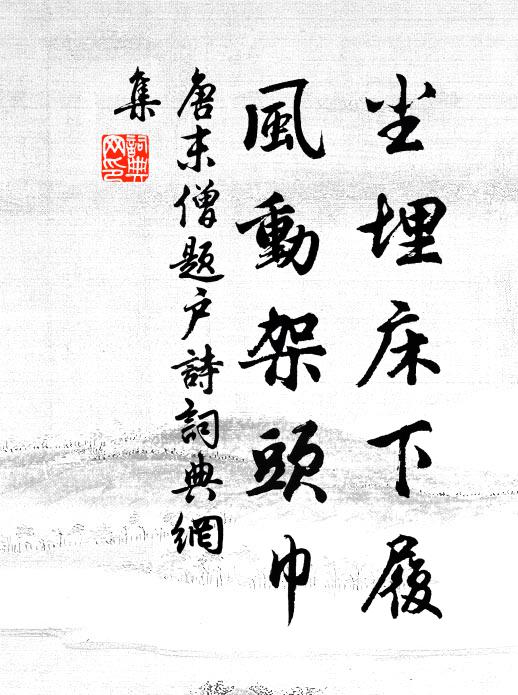 尘埋床下履
風動架頭巾
唐末僧題户詩詞典網
集
詞典網印